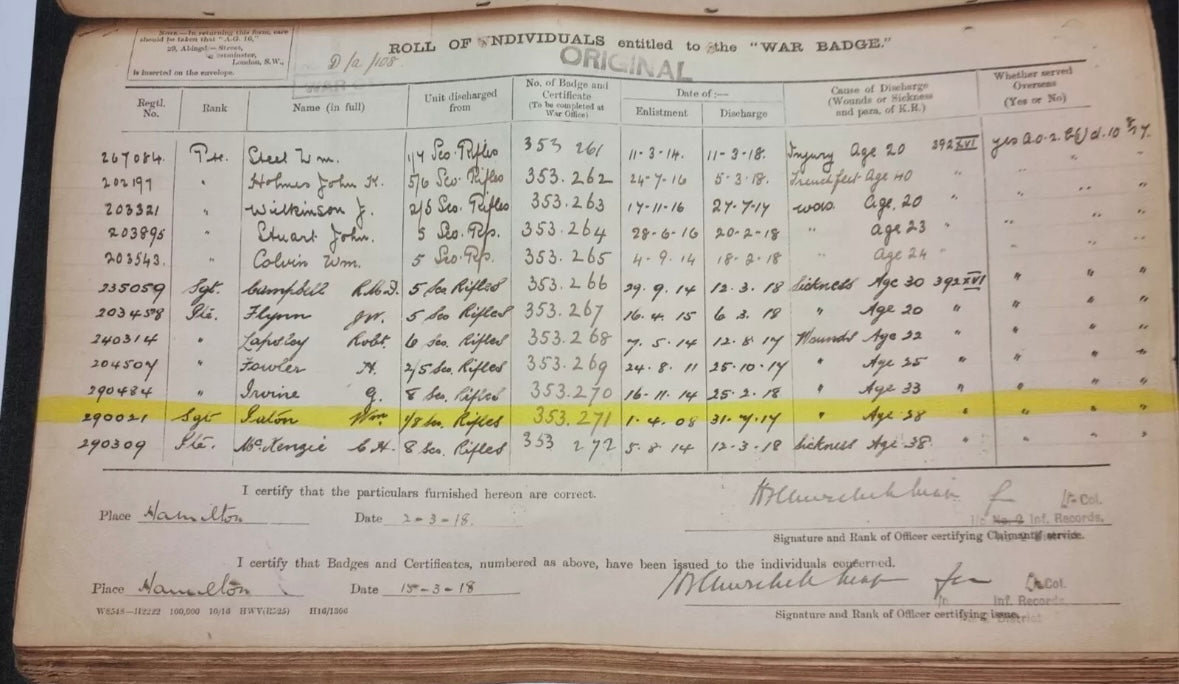 NOTE—In returning this form, care
should be taken that "A.G. 10,"
29, Abingdon Street,
Westminster,
London, S.W.,
is inserted on the envelope.
D/a/108
ROLL OF INDIVIDUALS entitled to the "WAR BADGE."
ORIGINAL
Regtl. No. Rank Name (in full) Unit discharged from No. of Badge and Certificate (To be completed at War Office) Date of:— Enlistment Discharge Cause of Discharge (Wounds or Sickness and para. of K.R.) Whether served Overseas (Yes or No)
267084. Pte. Steel Wm. 1/7 Sco. Rifles 353 261 11-3-14. 11-3-18. Injury Age 20 392 XVI yes
202197 " Holmes John K. 5/6 Sco. Rifles 353.262 24-7-16 5-3-18. Trenchfeet Age 40 " "
203321 " Wilkinson J. 2/5 Sco. Rifles 353.263 17-11-16 27-7-17 wds. Age. 20 " " "
203895 " Stuart John. 5 Sco. Rfs. 353.264 28-6-16 20-2-18 " Age 23 " " "
203543. " Colvin Wm. 5 Sco. Rfs. 353.265 4-9.14 18-2-18 " Age 24 " " "
235059 Sgt. Campbell 5 Sco Rifles 353.266 29.9.14 12.3.18 Sickness Age 30 392 XVI " " "
203458 Pte. Flynn JW. 5 Sco Rifles 353.267 16.4.15 6 3.18 " Age 20 " " " "
240314 " Lapsley Robt. 6 Sco. Rifles 353.268 7.5.14 12.8.17 Wounds Age 22 " " " "
204507 " Fowler H. 2/5 Sco. Rifles 353.269 24.8.11 25.10.17 " Age 25 " " " "
290484 " Irvine G. 8 Sco. Rifles 353.270 16.11.14 25.2.18 " Age 33 " " " "
290021 Sgt Paton Wm 1/8 Sco. Rifles 353.271 1.4.08 31.7.17 " Age 38 " " " "
290309 Pte. McKenzie C.H. 8 Sco. Rifles 353 272 5.8.14 12.3.18 Sickness Age 38. " " " "
I certify that the particulars furnished hereon are correct.
Place Hamilton Date 2-3-18. Lt-Col.
i/c No. 2 Inf. Records,
Signature and Rank of Officer certifying Claimants' service.
I certify that Badges and Certificates, numbered as above, have been issued to the individuals concerned.
Place Hamilton Date 15-3-18 Lt Col.
Inf. Records
Signature and Rank of Officer certifying issue.
District
W8548—H2222 100,000 10/16 HWV(R525) H16/1366